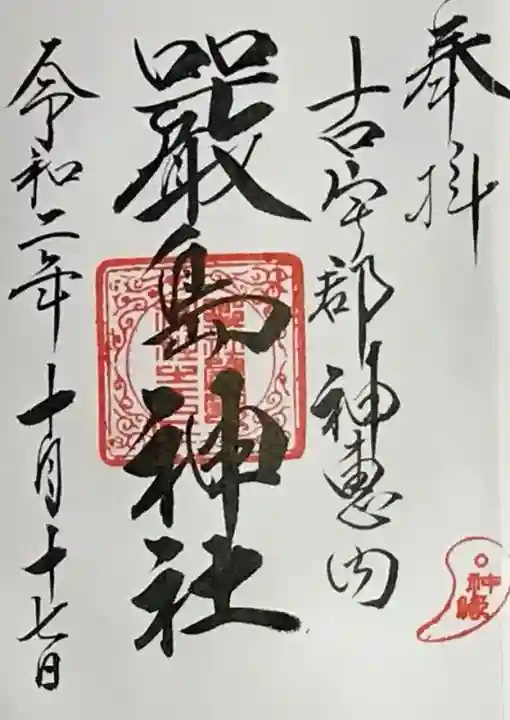 奉拝
古宇部神恵内
嚴島神社
令和二年十月十七日
神縁